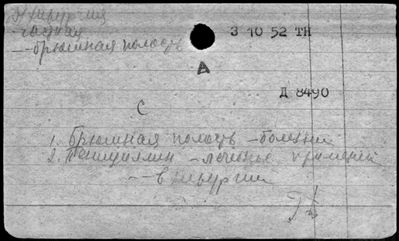 Хирургия
частная
-- брюшная полость
3 10 52 ТН
А
Д 8490
С
1. Брюшная полость - болезни
2. Пенициллин - лечебное применение
-- в хирургии